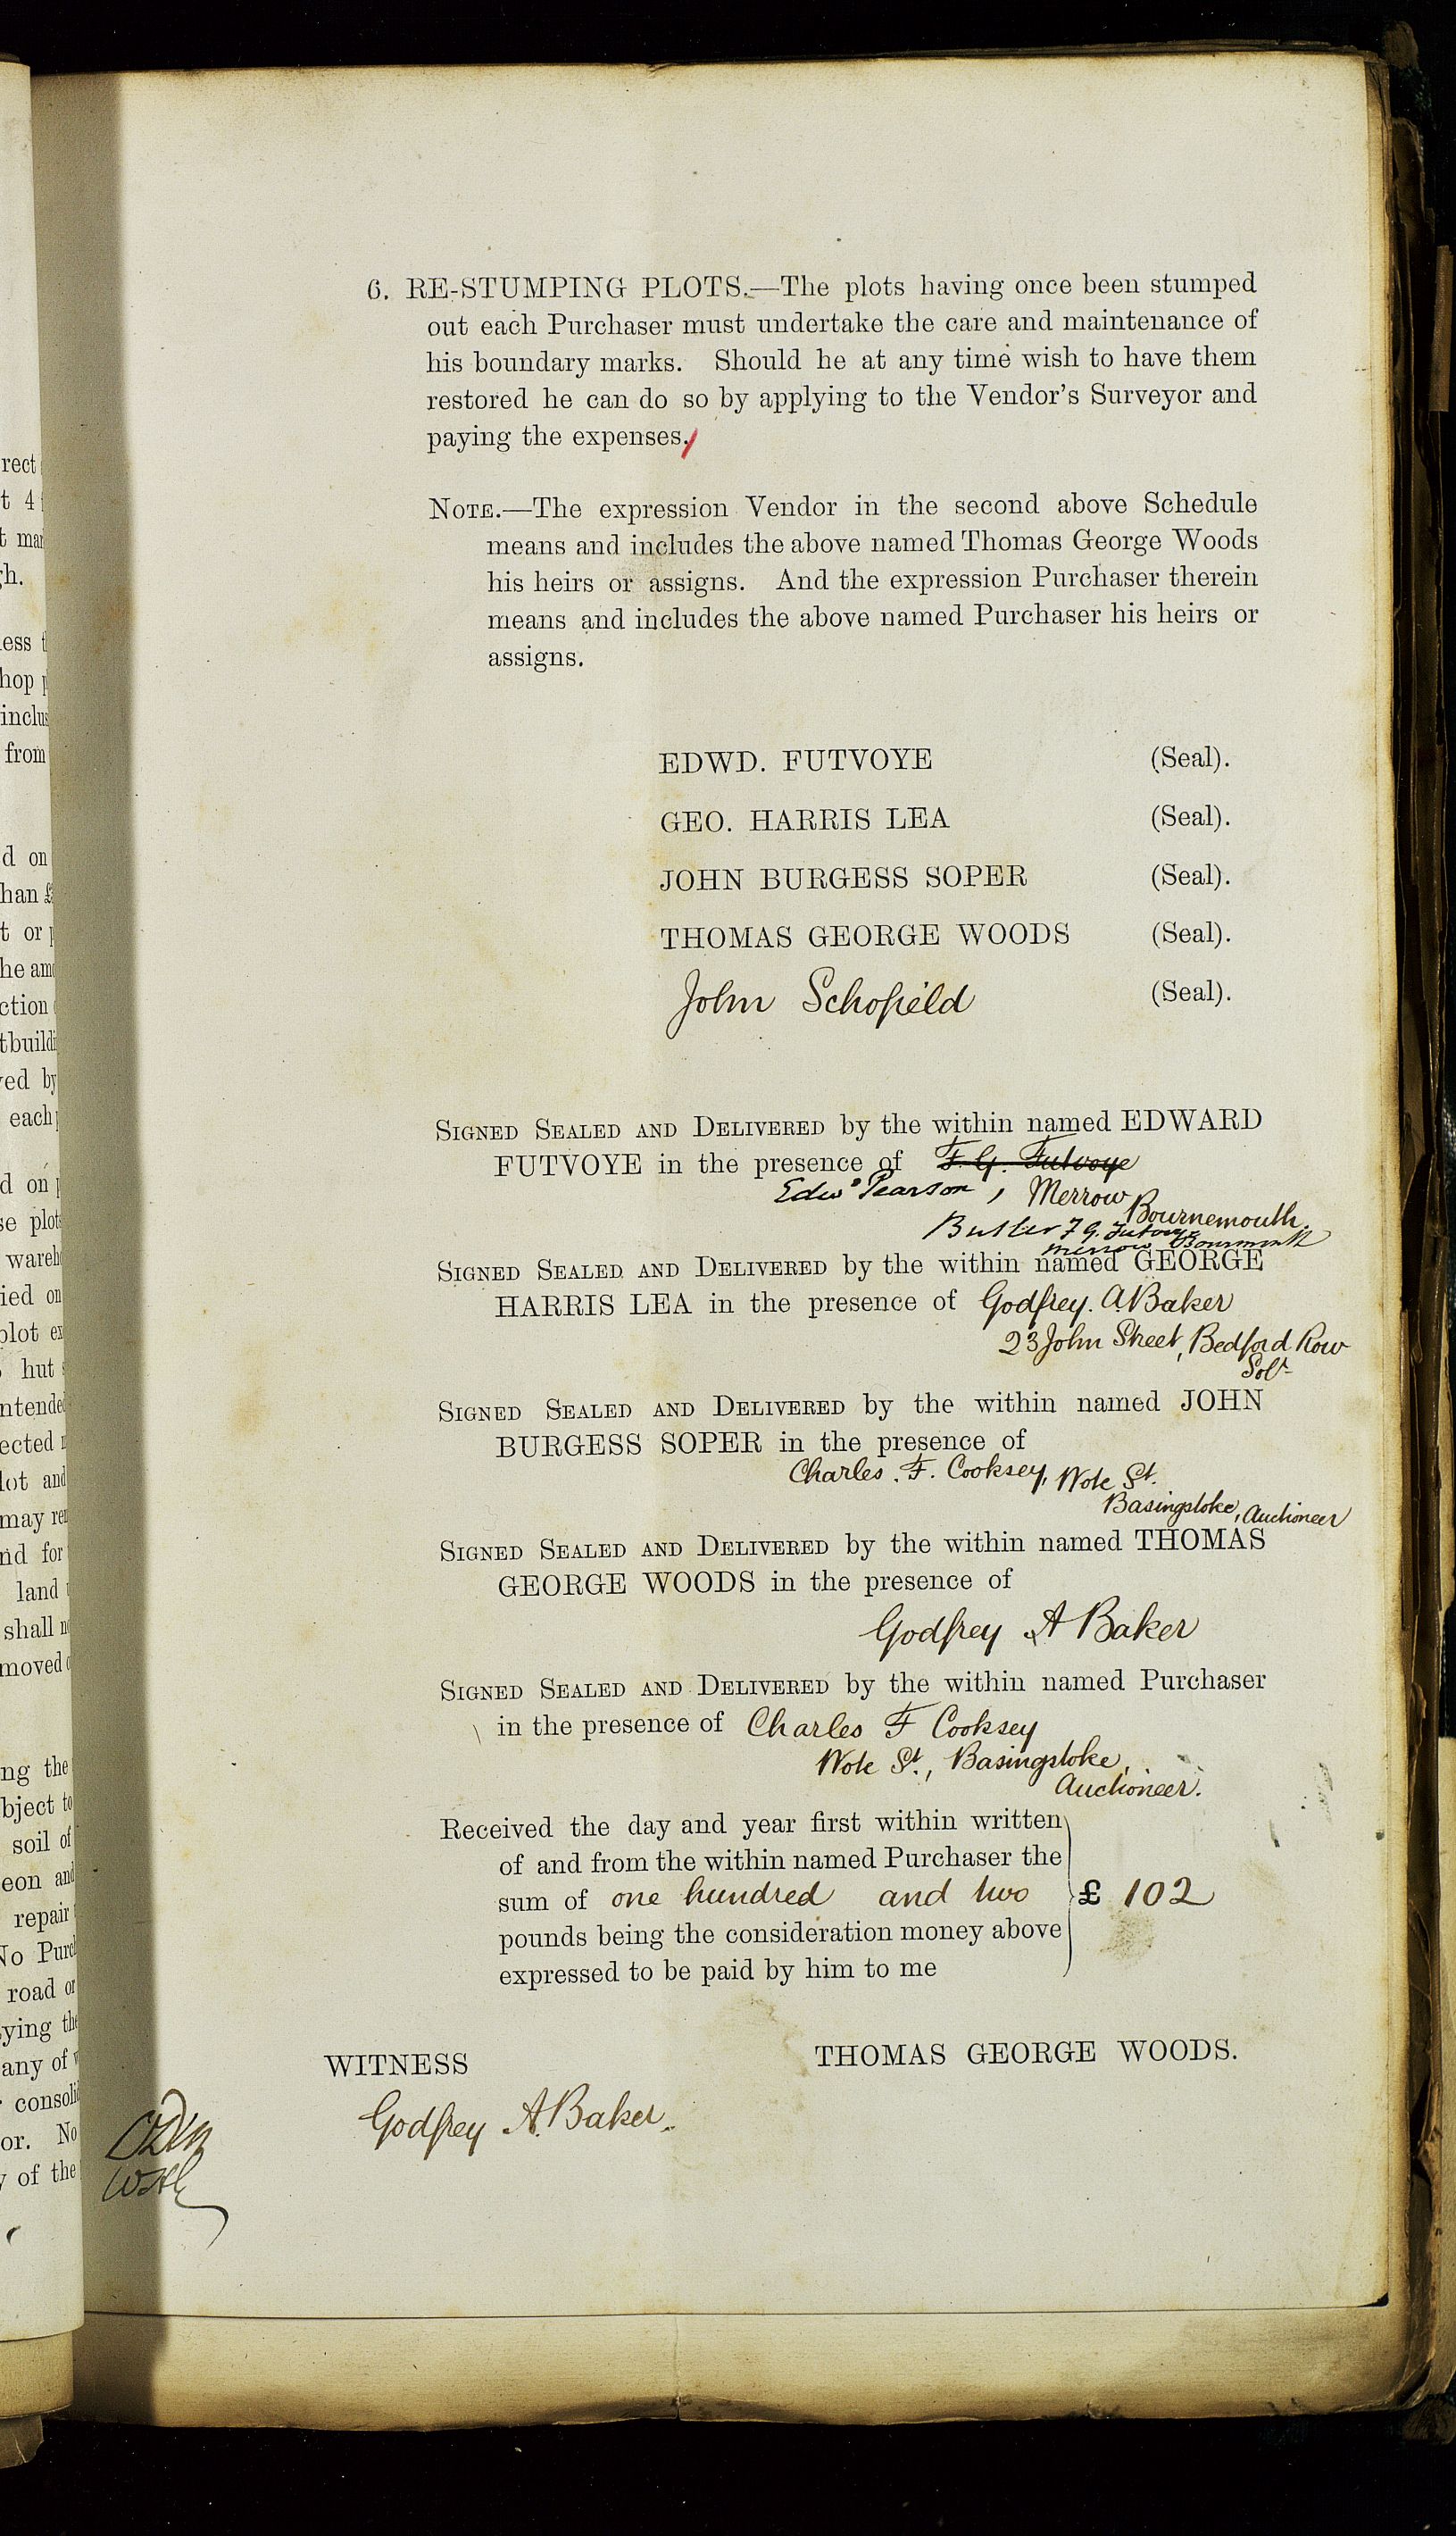 6. RE-STUMPING PLOTS.—The plots having once been stumped
out each Purchaser must undertake the care and maintenance of
his boundary marks. Should he at any time wish to have them
restored he can do so by applying to the Vendor's Surveyor and
paying the expenses.
NOTE.—The expression Vendor in the second above Schedule
means and includes the above named Thomas George Woods
his heirs or assigns. And the expression Purchaser therein
means and includes the above named Purchaser his heirs or
assigns.
EDWD. FUTVOYE (Seal).
GEO. HARRIS LEA (Seal).
JOHN BURGESS SOPER (Seal).
THOMAS GEORGE WOODS (Seal).
John Schofield (Seal).
SIGNED SEALED AND DELIVERED by the within named EDWARD
FUTVOYE in the presence of F. G. Futvoye
Edwd Pearson, Merrow Bournemouth.
Butler F G. Futvoye
Merrow Bournemouth
SIGNED SEALED AND DELIVERED by the within named GEORGE
HARRIS LEA in the presence of Godfrey. A. Baker
23 John Street, Bedford Row
Solr
SIGNED SEALED AND DELIVERED by the within named JOHN
BURGESS SOPER in the presence of
Charles. F. Cooksey, Wote St.
Basingstoke, Auctioneer
SIGNED SEALED AND DELIVERED by the within named THOMAS
GEORGE WOODS in the presence of
Godfrey A Baker
SIGNED SEALED AND DELIVERED by the within named Purchaser
in the presence of Charles F Cooksey
Wote St., Basingstoke,
Auctioneer.
Received the day and year first within written
of and from the within named Purchaser the
sum of one hundred and two £ 102
pounds being the consideration money above
expressed to be paid by him to me
WITNESS THOMAS GEORGE WOODS.
Godfrey A. Baker.
rect
t 4
gh.
hop
from
d on
han
t or
ction
ved by
each
d on
ied on
hut
lot and
nd for
land
shall
moved
ng the
bject to
soil of
eon and
repair
road or
ying the
any of
or. No
y of the